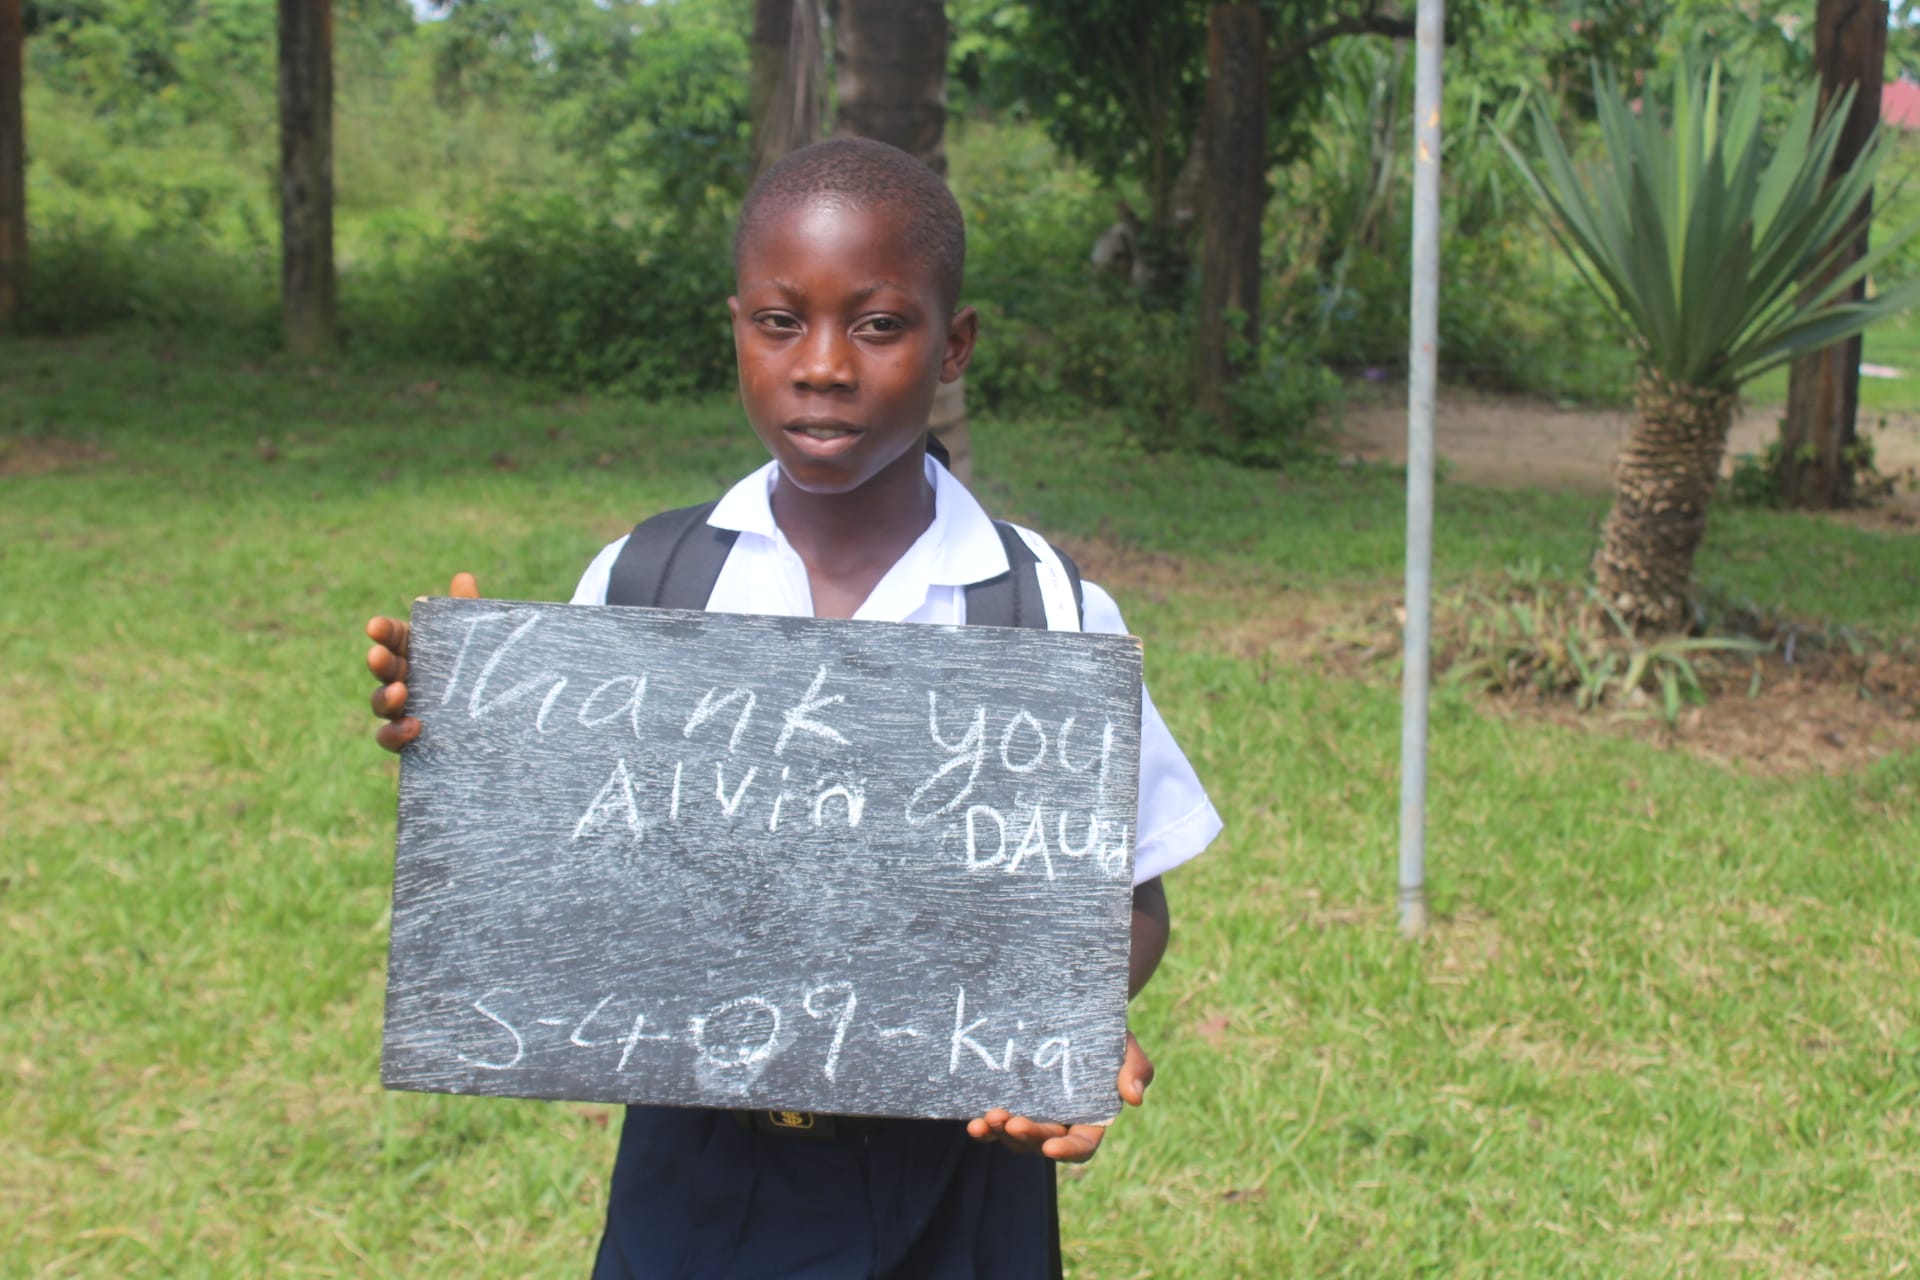 Thank you
Alvin DAUd
S-409-kiq